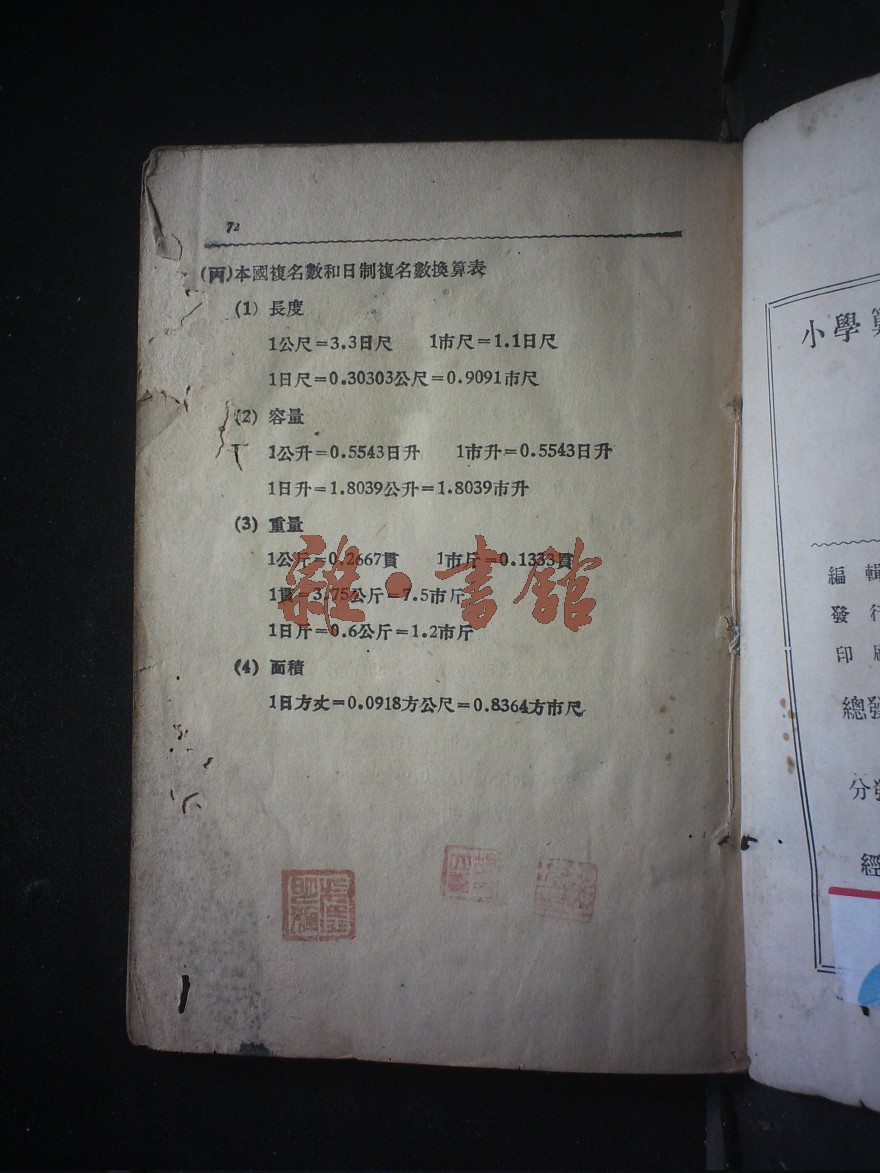 72
(丙)本國複名數和日制複名數換算表
(1) 長度
1公尺=3.3日尺 1市尺=1.1日尺
1日尺=0.30303公尺=0.9091市尺
(2) 容量
1公升=0.5543日升 1市升=0.5543日升
1日升=1.8039公升=1.8039市升
(3) 重量
1公斤=0.2667貫 1市斤=0.1333貫
1貫=3.75公斤=7.5市斤
1日斤=0.6公斤=1.2市斤
(4) 面積
1日方丈=0.0918方公尺=0.8364方市尺
雜·書館
小學算
編輯
發行
印刷
總發
分發
經